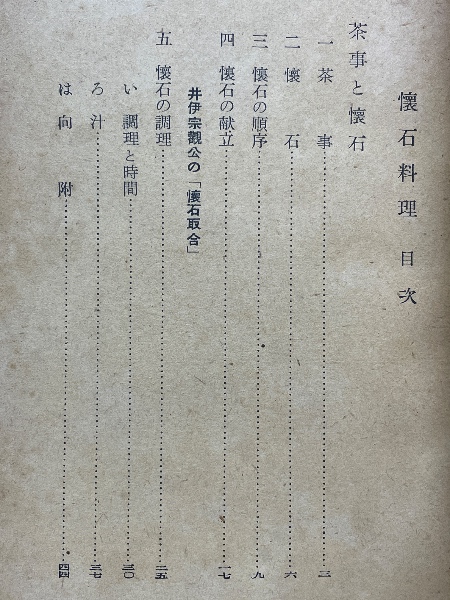 懷石料理 目次
茶事と懷石
一 茶事……三
二 懷石……六
三 懷石の順序……九
四 懷石の献立……一七
井伊宗觀公の「懷石取合」
五 懷石の調理……二五
い 調理と時間……三〇
ろ 汁……三七
は 向附……四四